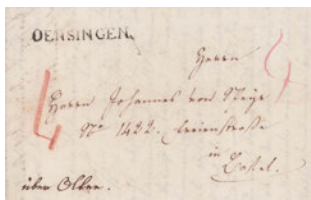 OENSINGEN.
Herrn
Herrn Johannes von
N° 1422. Freienstraße
in
Basel.
über Olten.